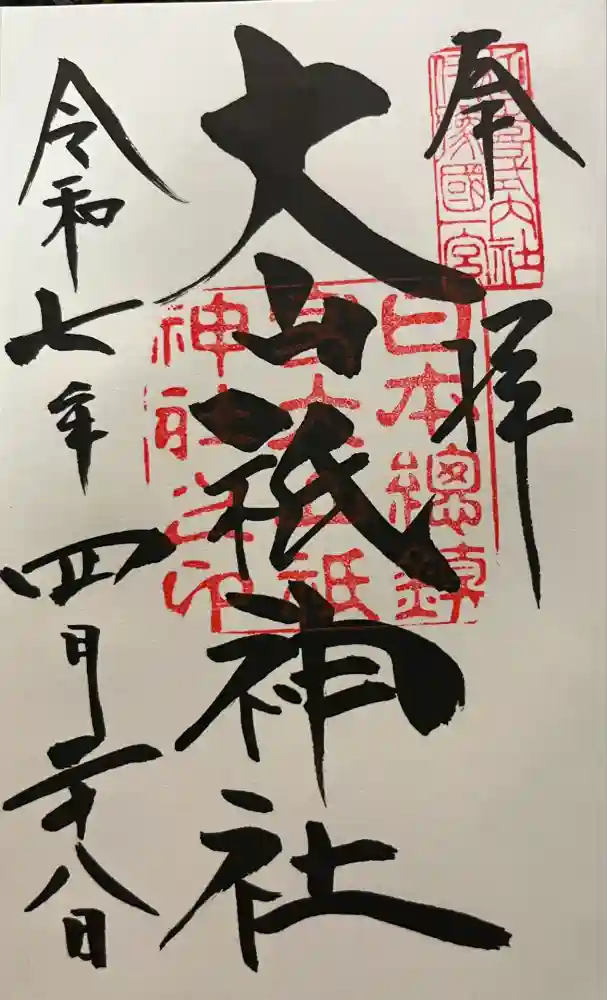 奉拝
延喜式内社
伊豫國一宮
日本總鎮
守大山祇
神社之印
大山祇神社
令和七年四月二十八日